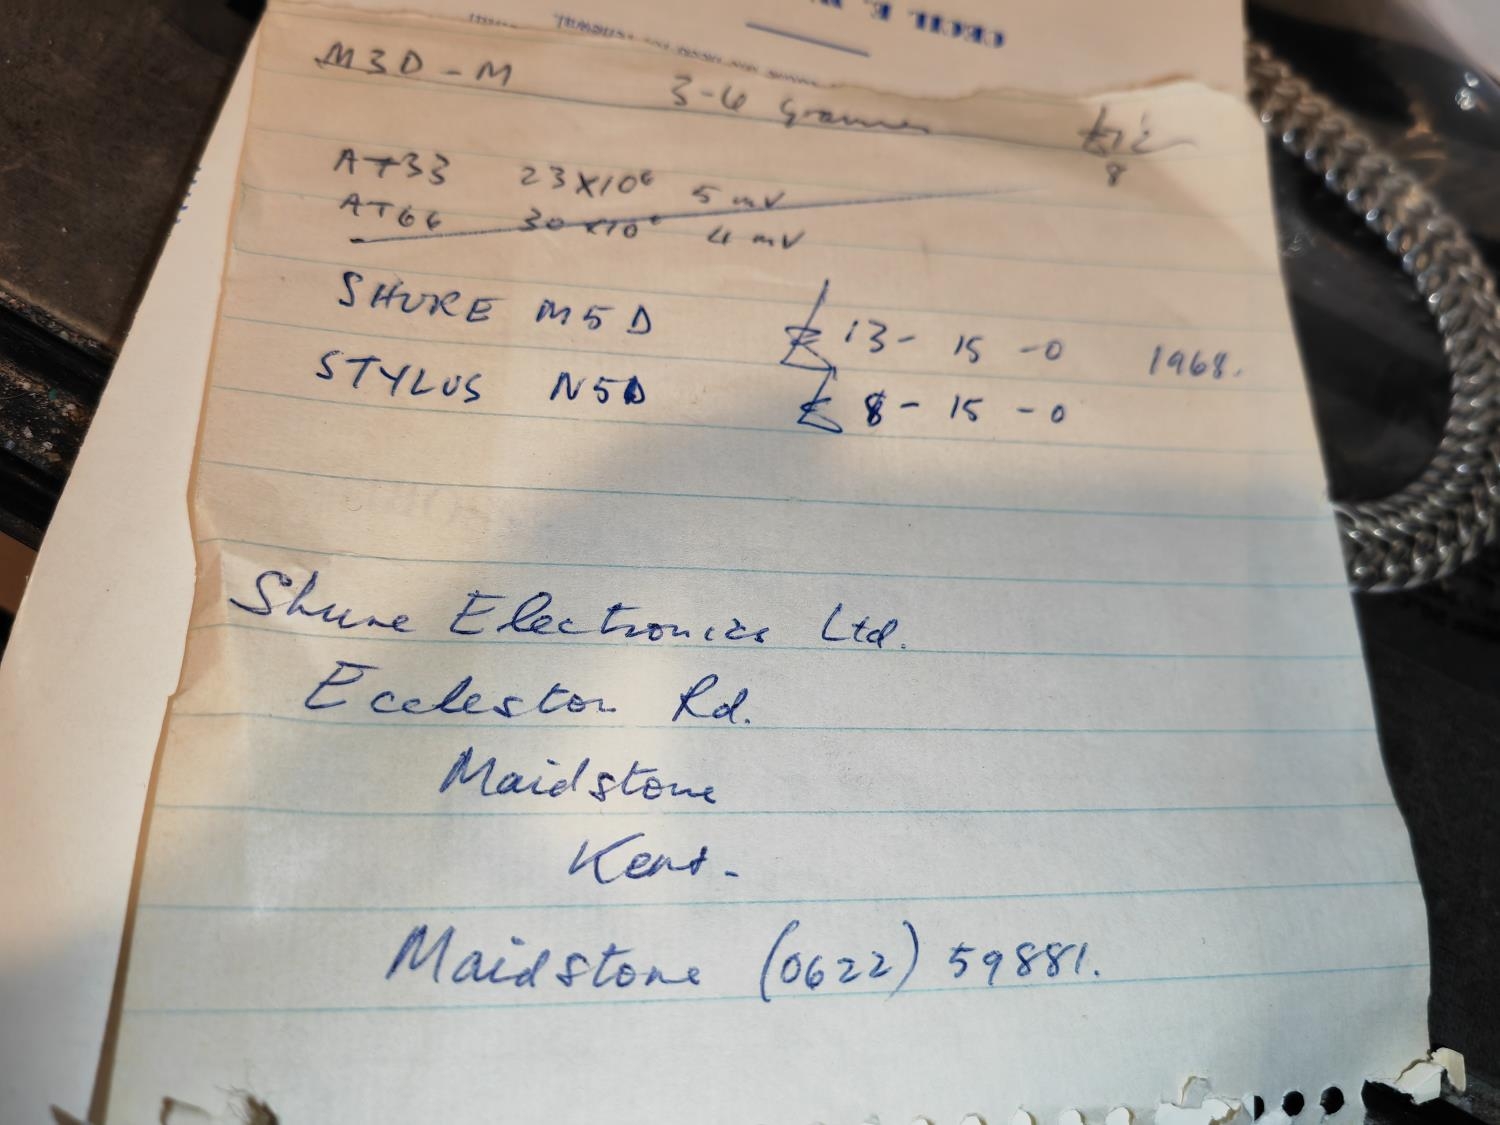 CECIL E.
M3D-M 3-6 grammes
8
AT33 23×10⁶ 5 mV
AT66 30×10⁶ 4 mV
SHURE M5D £ 13 - 15 - 0 1968.
STYLUS N5D £ 8 - 15 - 0
Shure Electronics Ltd.
Eccleston Rd.
Maidstone
Kent.
Maidstone (0622) 59881.